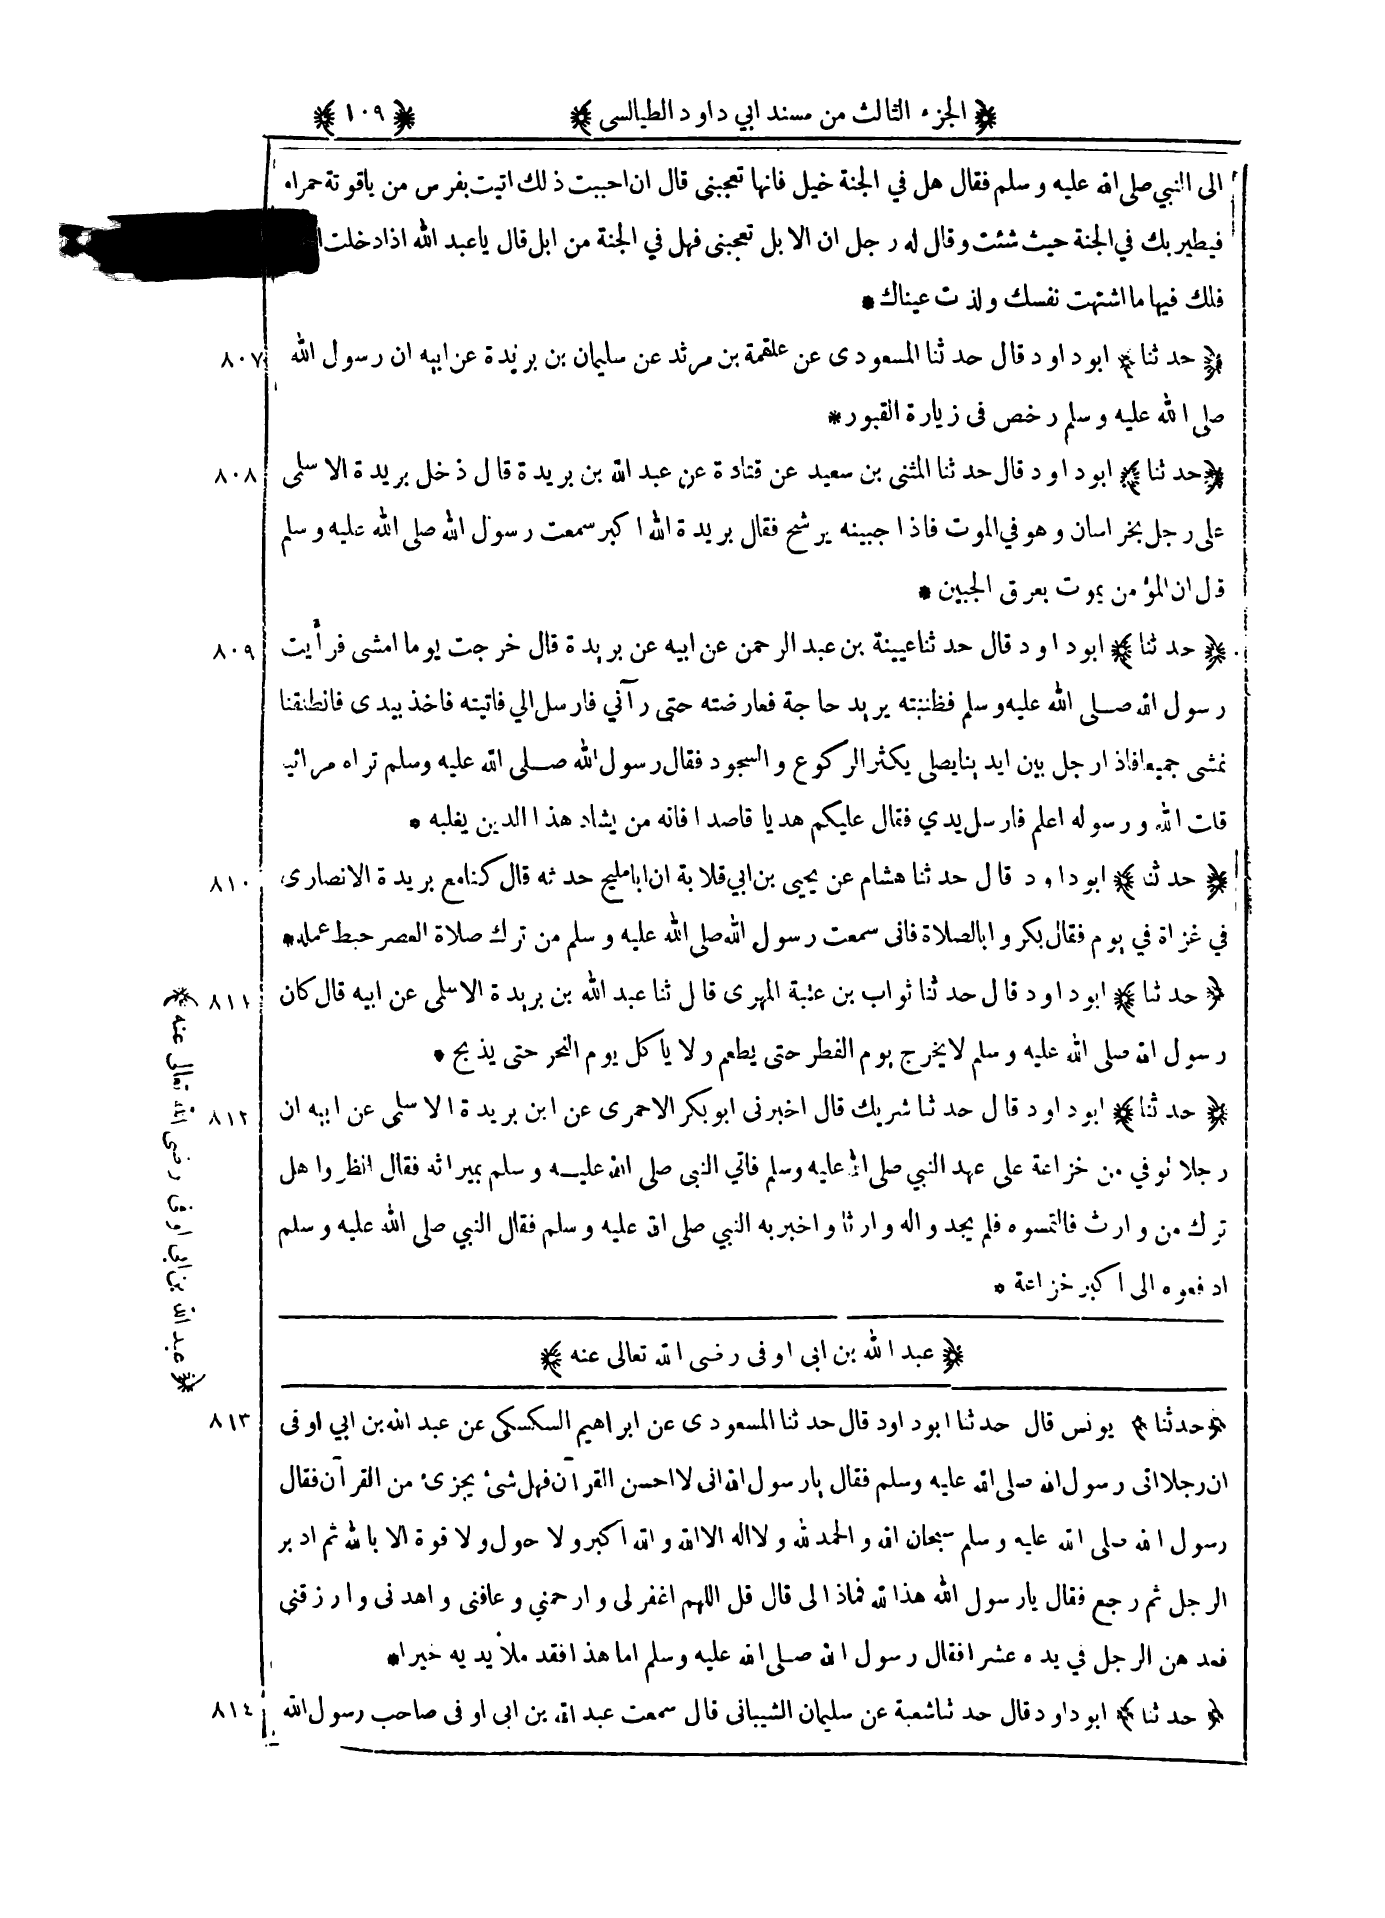 ﴿ الجزء الثالث من مسند ابي داود الطيالسى ﴾ ﴿ ١٠٩ ﴾
الى النبي صلى الله عليه وسلم فقال هل في الجنة خيل فانها تعجبنى قال ان احببت ذلك اتيت بفرس من ياقوتة حمراء
فيطير بك في الجنة حيث شئت وقال له رجل ان الابل تعجبنى فهل في الجنة من ابل قال يا عبد الله اذا دخلت
فلك فيها ما اشتهت نفسك ولذت عيناك *
﴿ حدثنا ﴾ ابو داود قال حدثنا المسعودى عن علقمة بن مرثد عن سليمان بن بريدة عن ابيه ان رسول الله ٨٠٧
صلى الله عليه وسلم رخص فى زيارة القبور *
﴿ حدثنا ﴾ ابو داود قال حدثنا المثنى بن سعيد عن قتادة عن عبد الله بن بريدة قال دخل بريدة الاسلمى ٨٠٨
على رجل بخراسان وهو في الموت فاذا جبينه يرشح فقال بريدة الله اكبر سمعت رسول الله صلى الله عليه وسلم
قال ان المؤمن يموت بعرق الجبين *
﴿ حدثنا ﴾ ابو داود قال حدثنا عيينة بن عبد الرحمن عن ابيه عن بريدة قال خرجت يوما امشى فرأيت ٨٠٩
رسول الله صلى الله عليه وسلم فظننته يريد حاجة فعارضته حتى رآني فارسل الي فاتيته فاخذ بيدى فانطلقنا
نمشى جميعا فاذا رجل بين ايدينا يصلى يكثر الركوع والسجود فقال رسول الله صلى الله عليه وسلم تراه مرائيا
قلت الله ورسوله اعلم فارسل يدي فقال عليكم هديا قاصدا فانه من يشاد هذا الدين يغلبه *
﴿ حدثنا ﴾ ابو داود قال حدثنا هشام عن يحيى بن ابي قلابة ان ابا مليح حدثه قال كنا مع بريدة الانصارى ٨١٠
في غزاة في يوم فقال بكروا بالصلاة فانى سمعت رسول الله صلى الله عليه وسلم من ترك صلاة العصر حبط عمله *
﴿ حدثنا ﴾ ابو داود قال حدثنا ثواب بن عتبة المهرى قال ثنا عبد الله بن بريدة الاسلمى عن ابيه قال كان ٨١١
رسول الله صلى الله عليه وسلم لا يخرج يوم الفطر حتى يطعم ولا ياكل يوم النحر حتى يذبح *
﴿ حدثنا ﴾ ابو داود قال حدثنا شريك قال اخبرنى ابو بكر الاحمرى عن ابن بريدة الاسلمى عن ابيه ان ٨١٢
رجلا توفي من خزاعة على عهد النبي صلى الله عليه وسلم فاتي النبى صلى الله عليه وسلم بميراثه فقال انظروا هل
ترك من وارث فالتمسوه فلم يجدوا له وارثا واخبر به النبي صلى الله عليه وسلم فقال النبي صلى الله عليه وسلم
ادفعوه الى اكبر خزاعة *
﴿ عبد الله بن ابى اوفى رضى الله تعالى عنه ﴾
﴿ عبد الله بن ابى اوفى رضى الله تعالى عنه ﴾
﴿ حدثنا ﴾ يونس قال حدثنا ابو داود قال حدثنا المسعودى عن ابراهيم السكسكى عن عبد الله بن ابي اوفى ٨١٣
ان رجلا اتى رسول الله صلى الله عليه وسلم فقال يا رسول الله انى لا احسن القرآن فهل شئ يجزئ من القرآن فقال
رسول الله صلى الله عليه وسلم سبحان الله والحمد لله ولا اله الا الله والله اكبر ولا حول ولا قوة الا بالله ثم ادبر
الرجل ثم رجع فقال يا رسول الله هذا لله فماذا لى قال قل اللهم اغفر لى وارحمني وعافنى واهدنى وارزقنى
فعدهن الرجل في يده عشرا فقال رسول الله صلى الله عليه وسلم اما هذا فقد ملأ يديه خيرا *
﴿ حدثنا ﴾ ابو داود قال حدثنا شعبة عن سليمان الشيبانى قال سمعت عبد الله بن ابى اوفى صاحب رسول الله ٨١٤